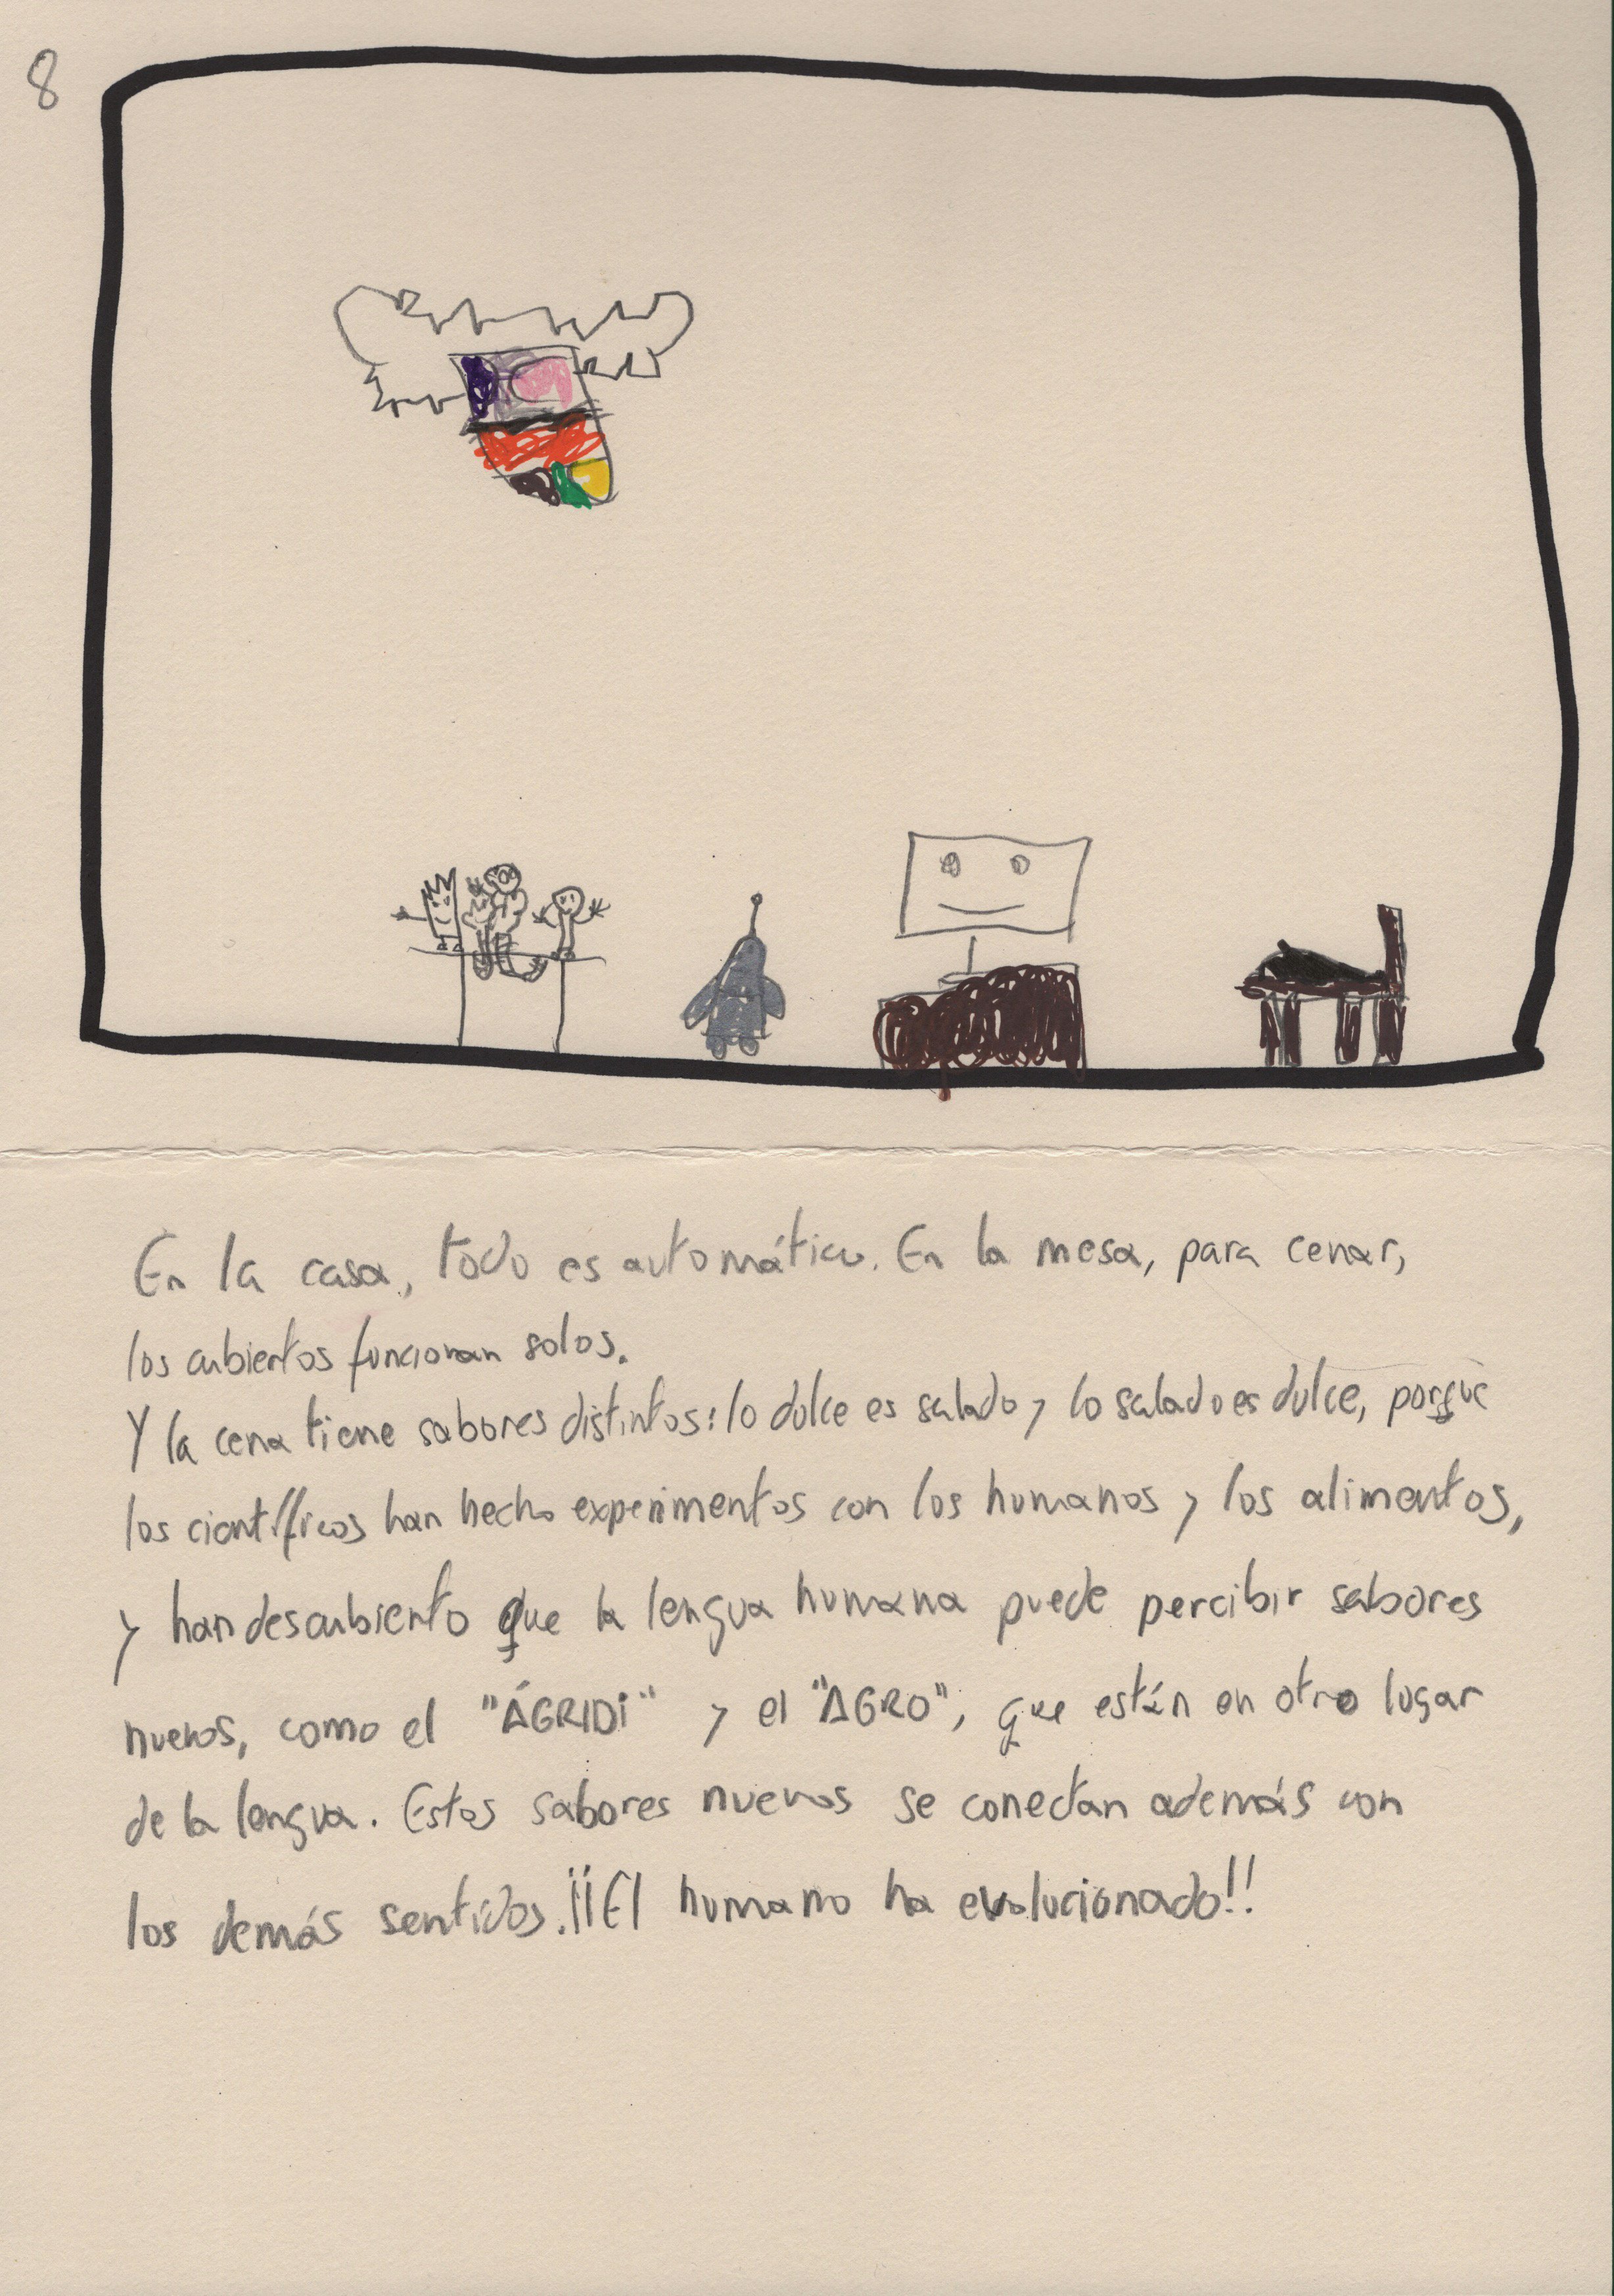 8
En la casa, todo es automático. En la mesa, para cenar,
los cubiertos funcionan solos.
Y la cena tiene sabores distintos: lo dulce es salado y lo salado es dulce, porque
los científicos han hecho experimentos con los humanos y los alimentos,
y han descubierto que la lengua humana puede percibir sabores
nuevos, como el "ÁGRIDi" y el "AGRO", que están en otro lugar
de la lengua. Estos sabores nuevos se conectan además con
los demás sentidos. ¡¡El humano ha evolucionado!!